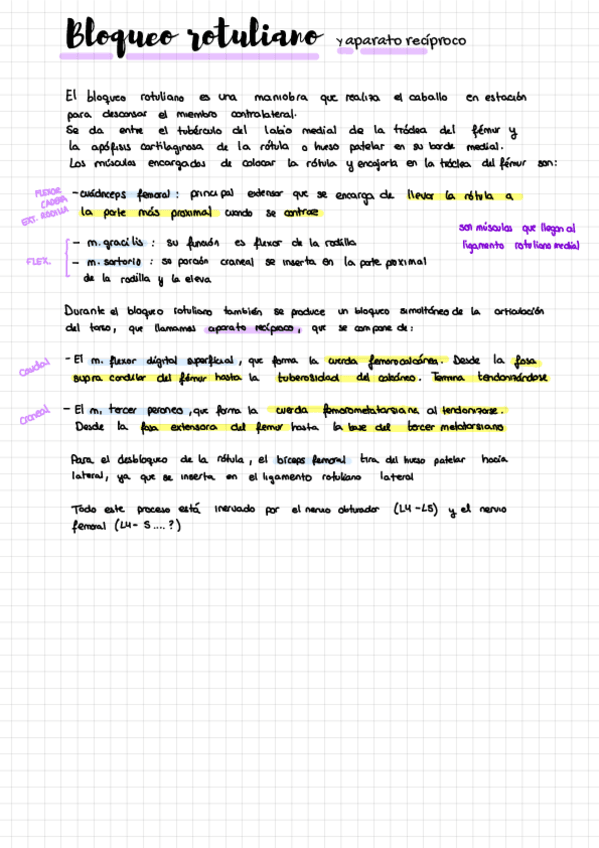 Bloqueo rotuliano y aparato recíproco
El bloqueo rotuliano es una maniobra que realiza el caballo en estación
para descansar el miembro contralateral.
Se da entre el tubérculo del labio medial de la tróclea del fémur y
la apófisis cartilaginosa de la rótula o hueso patelar en su borde medial.
Los músculos encargados de colocar la rótula y encajarla en la tróclea del fémur son:
FLEXOR
CADERA
EXT. RODILLA
- cuádriceps femoral : principal extensor que se encarga de llevar la rótula a
la parte más proximal cuando se contrae
son músculos que llegan al
ligamento rotuliano medial
FLEX.
- m. gracilis : su función es flexor de la rodilla
- m. sartorio : su porción craneal se inserta en la parte proximal
de la rodilla y la eleva
Durante el bloqueo rotuliano también se produce un bloqueo simultáneo de la articulación
del tarso, que llamamos aparato recíproco, que se compone de:
Caudal
- El m. flexor digital superficial, que forma la cuerda femorocalcánea. Desde la fosa
supracondilar del fémur hasta la tuberosidad del calcáneo. Termina tendonizándose
Craneal
- El m. tercer peroneo, que forma la cuerda femorometatarsiana al tendonizarse.
Desde la fosa extensora del femur hasta la base del tercer metatarsiano
Para el desbloqueo de la rótula, el bíceps femoral tira del hueso patelar hacia
lateral, ya que se inserta en el ligamento rotuliano lateral
Todo este proceso está inervado por el nervio obturador (L4-L5) y el nervio
femoral (L4- S....?)